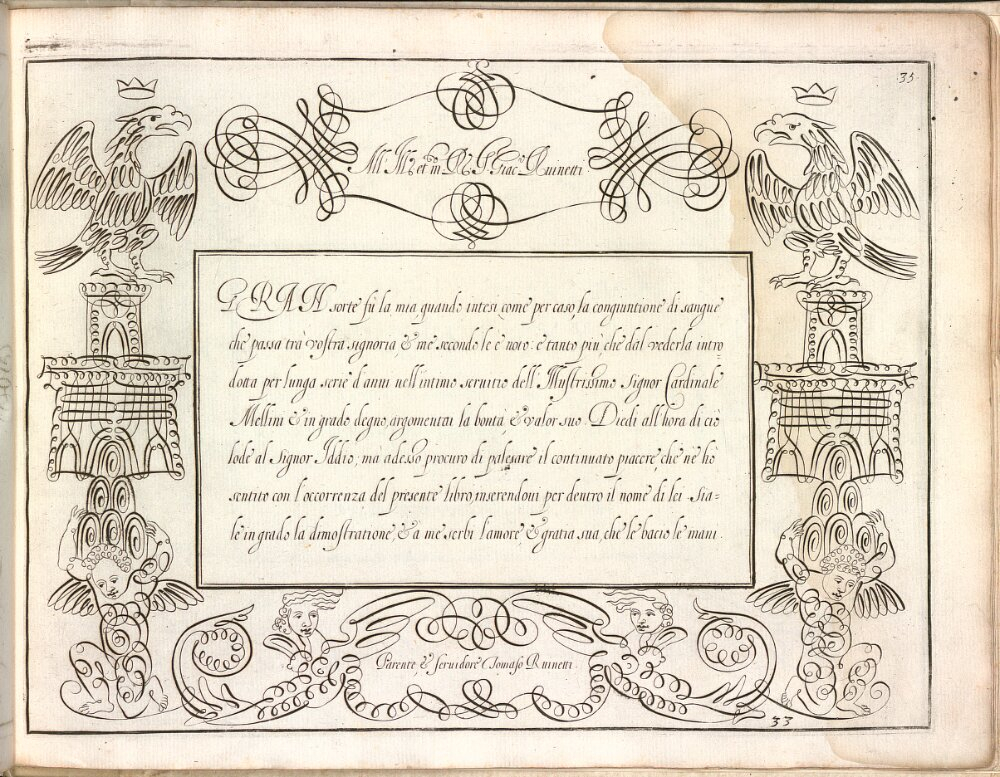 35
Al M.to Ill. et m. R. S. Giac.o Ruinetti
GRAN sorte fù la mia quando intesi come per caso, la congiuntione di sangue
che passa trà vostra signoria, & me secondo le è noto: e tanto piu, che dal vederla intro=
dotta per lunga serie d'anni nell'intimo seruitio dell'Illustrissimo Signor Cardinale
Mellini & in grado degno, argomentai la bontà, & valor suo. Diedi all'hora di ciò
lode al Signor Iddio, ma adesso procuro di palesare il continuato piacere, che nè hò
sentito con l'occorrenza del presente libro, inserendoui per dentro il nome di lei. Sia=
le in grado la dimostratione, & a me serbi l'amore, & gratia sua, che le bacio le mani.
Parente, & seruidore Tomaso Ruinetti.
33